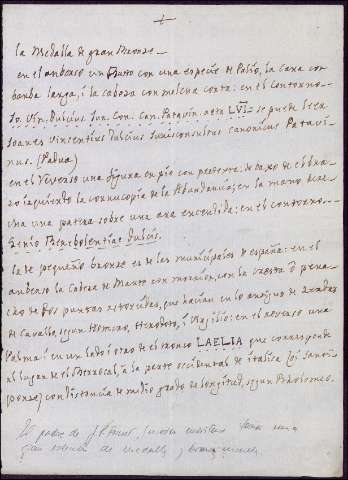 la Medalla de gran Bronze.
en el anberso un Busto con una especie de Palio, la cara con
barba larga, i la cabeza con melena corta: en el contorno.
Jo. Vin. Dulcius Jur. Con. Can. Patavin. aeta LVI. se puede leer
Joanes Vincentius Dulcius Jurisconsultus canonicus Patavi
nus. (Padua)
en el Reverso una figura en pie con : debaxo de el bra
zo izquierdo la cornucopia de la Abundancia; en la mano dere
cha una patera sobre una ara encendida: en el contorno.
Genio Benebolentiae Dulcis.
la de pequeño bronze es de las municipales de españa: en el
anberso la Cabeza de Marte con morrion, con la cresta ò pena
cho de dos puntas retorcidas, que hacian en lo antiguo de
de Cavallo, segun Homero, Herodoto, i Virgilio: en el reverso una
Palma: i en un lado i otro de el tronco LAELIA que corresponde
al lugar de el Berrocal, à la parte occidental de italica (oi Santi
ponze) con distancia de medio grado de longitud, segun Ptholomeo.
El padre de una
gran de medallas y